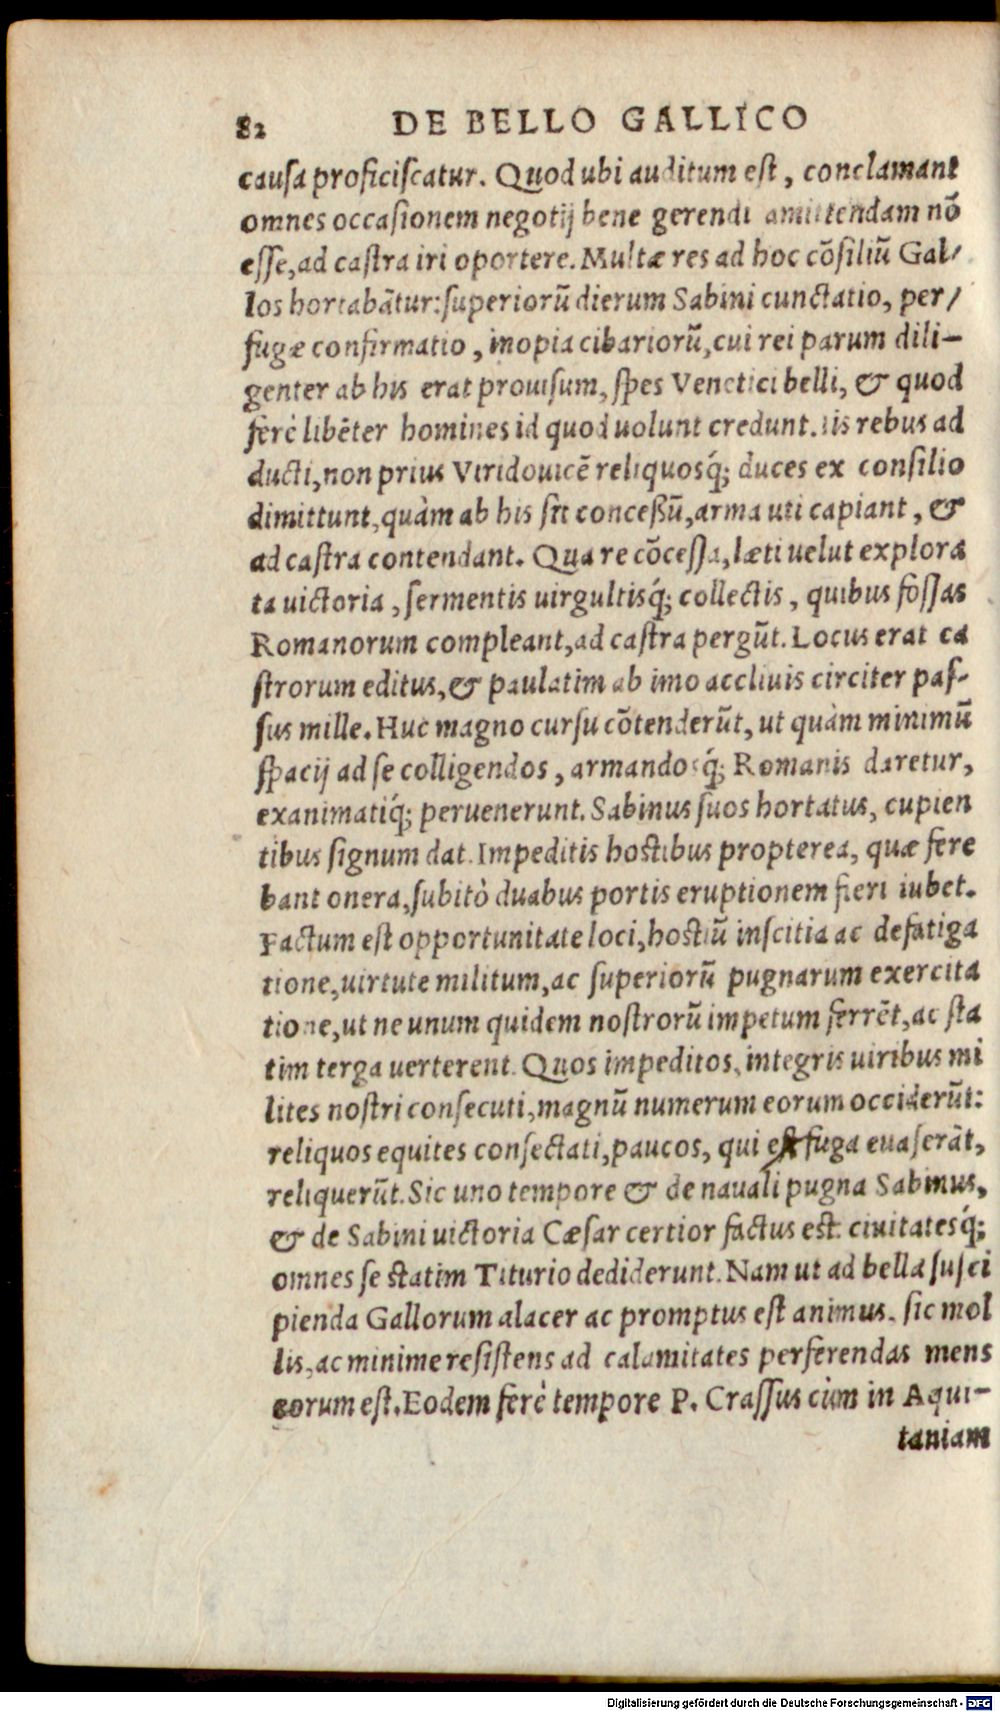 82 DE BELLO GALLICO
causa proficiscatur. Quod ubi auditum est, conclamant
omnes occasionem negotij bene gerendi amittendam nõ
esse, ad castra iri oportere. Multæ res ad hoc cõsiliũ Gal/
los hortabãtur: superiorũ dierum Sabini cunctatio, per/
fugæ confirmatio, inopia cibariorũ, cui rei parum dili-
genter ab his erat prouisum, spes Venetici belli, & quod
ferè libẽter homines id quod uolunt credunt. iis rebus ad
ducti, non prius Viridouicẽ reliquosq́; duces ex consilio
dimittunt, quàm ab his sit conceßũ, arma uti capiant, &
ad castra contendant. Qua re cõcessa, læti uelut explora
ta uictoria, sermentis uirgultisq́; collectis, quibus fossas
Romanorum compleant, ad castra pergũt. Locus erat ca
strorum editus, & paulatim ab imo accliuis circiter pas-
sus mille. Huc magno cursu cõtenderũt, ut quàm minimũ
spacij ad se colligendos, armandosq́; Romanis daretur,
exanimatiq́; peruenerunt. Sabinus suos hortatus, cupien
tibus signum dat. Impeditis hostibus propterea, quæ fere
bant onera, subitò duabus portis eruptionem fieri iubet.
Factum est opportunitate loci, hostiũ inscitia ac defatiga
tione, uirtute militum, ac superiorũ pugnarum exercita
tione, ut ne unum quidem nostrorũ impetum ferrẽt, ac sta
tim terga uerterent. Quos impeditos, integris uiribus mi
lites nostri consecuti, magnũ numerum eorum occiderũt:
reliquos equites consectati, paucos, qui fuga euaserãt,
reliquerũt. Sic uno tempore & de nauali pugna Sabinus,
& de Sabini uictoria Cæsar certior factus est. ciuitatesq́;
omnes se statim Titurio dediderunt. Nam ut ad bella susci
pienda Gallorum alacer ac promptus est animus. sic mol
lis, ac minime resistens ad calamitates perferendas mens
eorum est. Eodem ferè tempore P. Crassus cùm in Aqui-
taniam
Digitalisierung gefördert durch die Deutsche Forschungsgemeinschaft - DFG